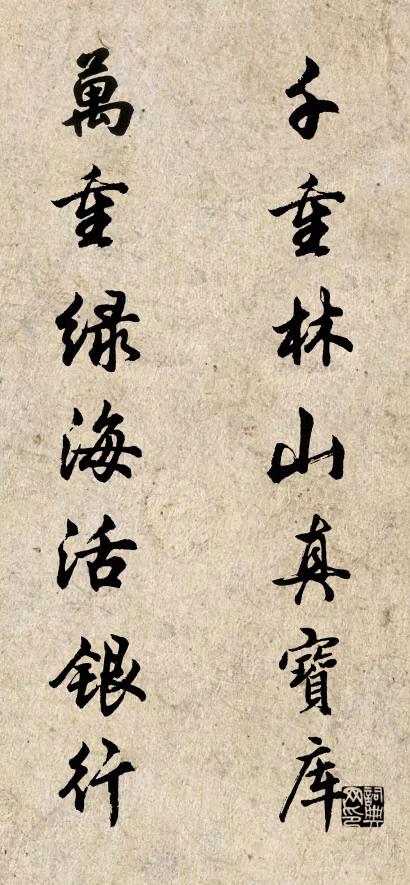 千重林山真寶库
萬重绿海活銀行
詞典网印